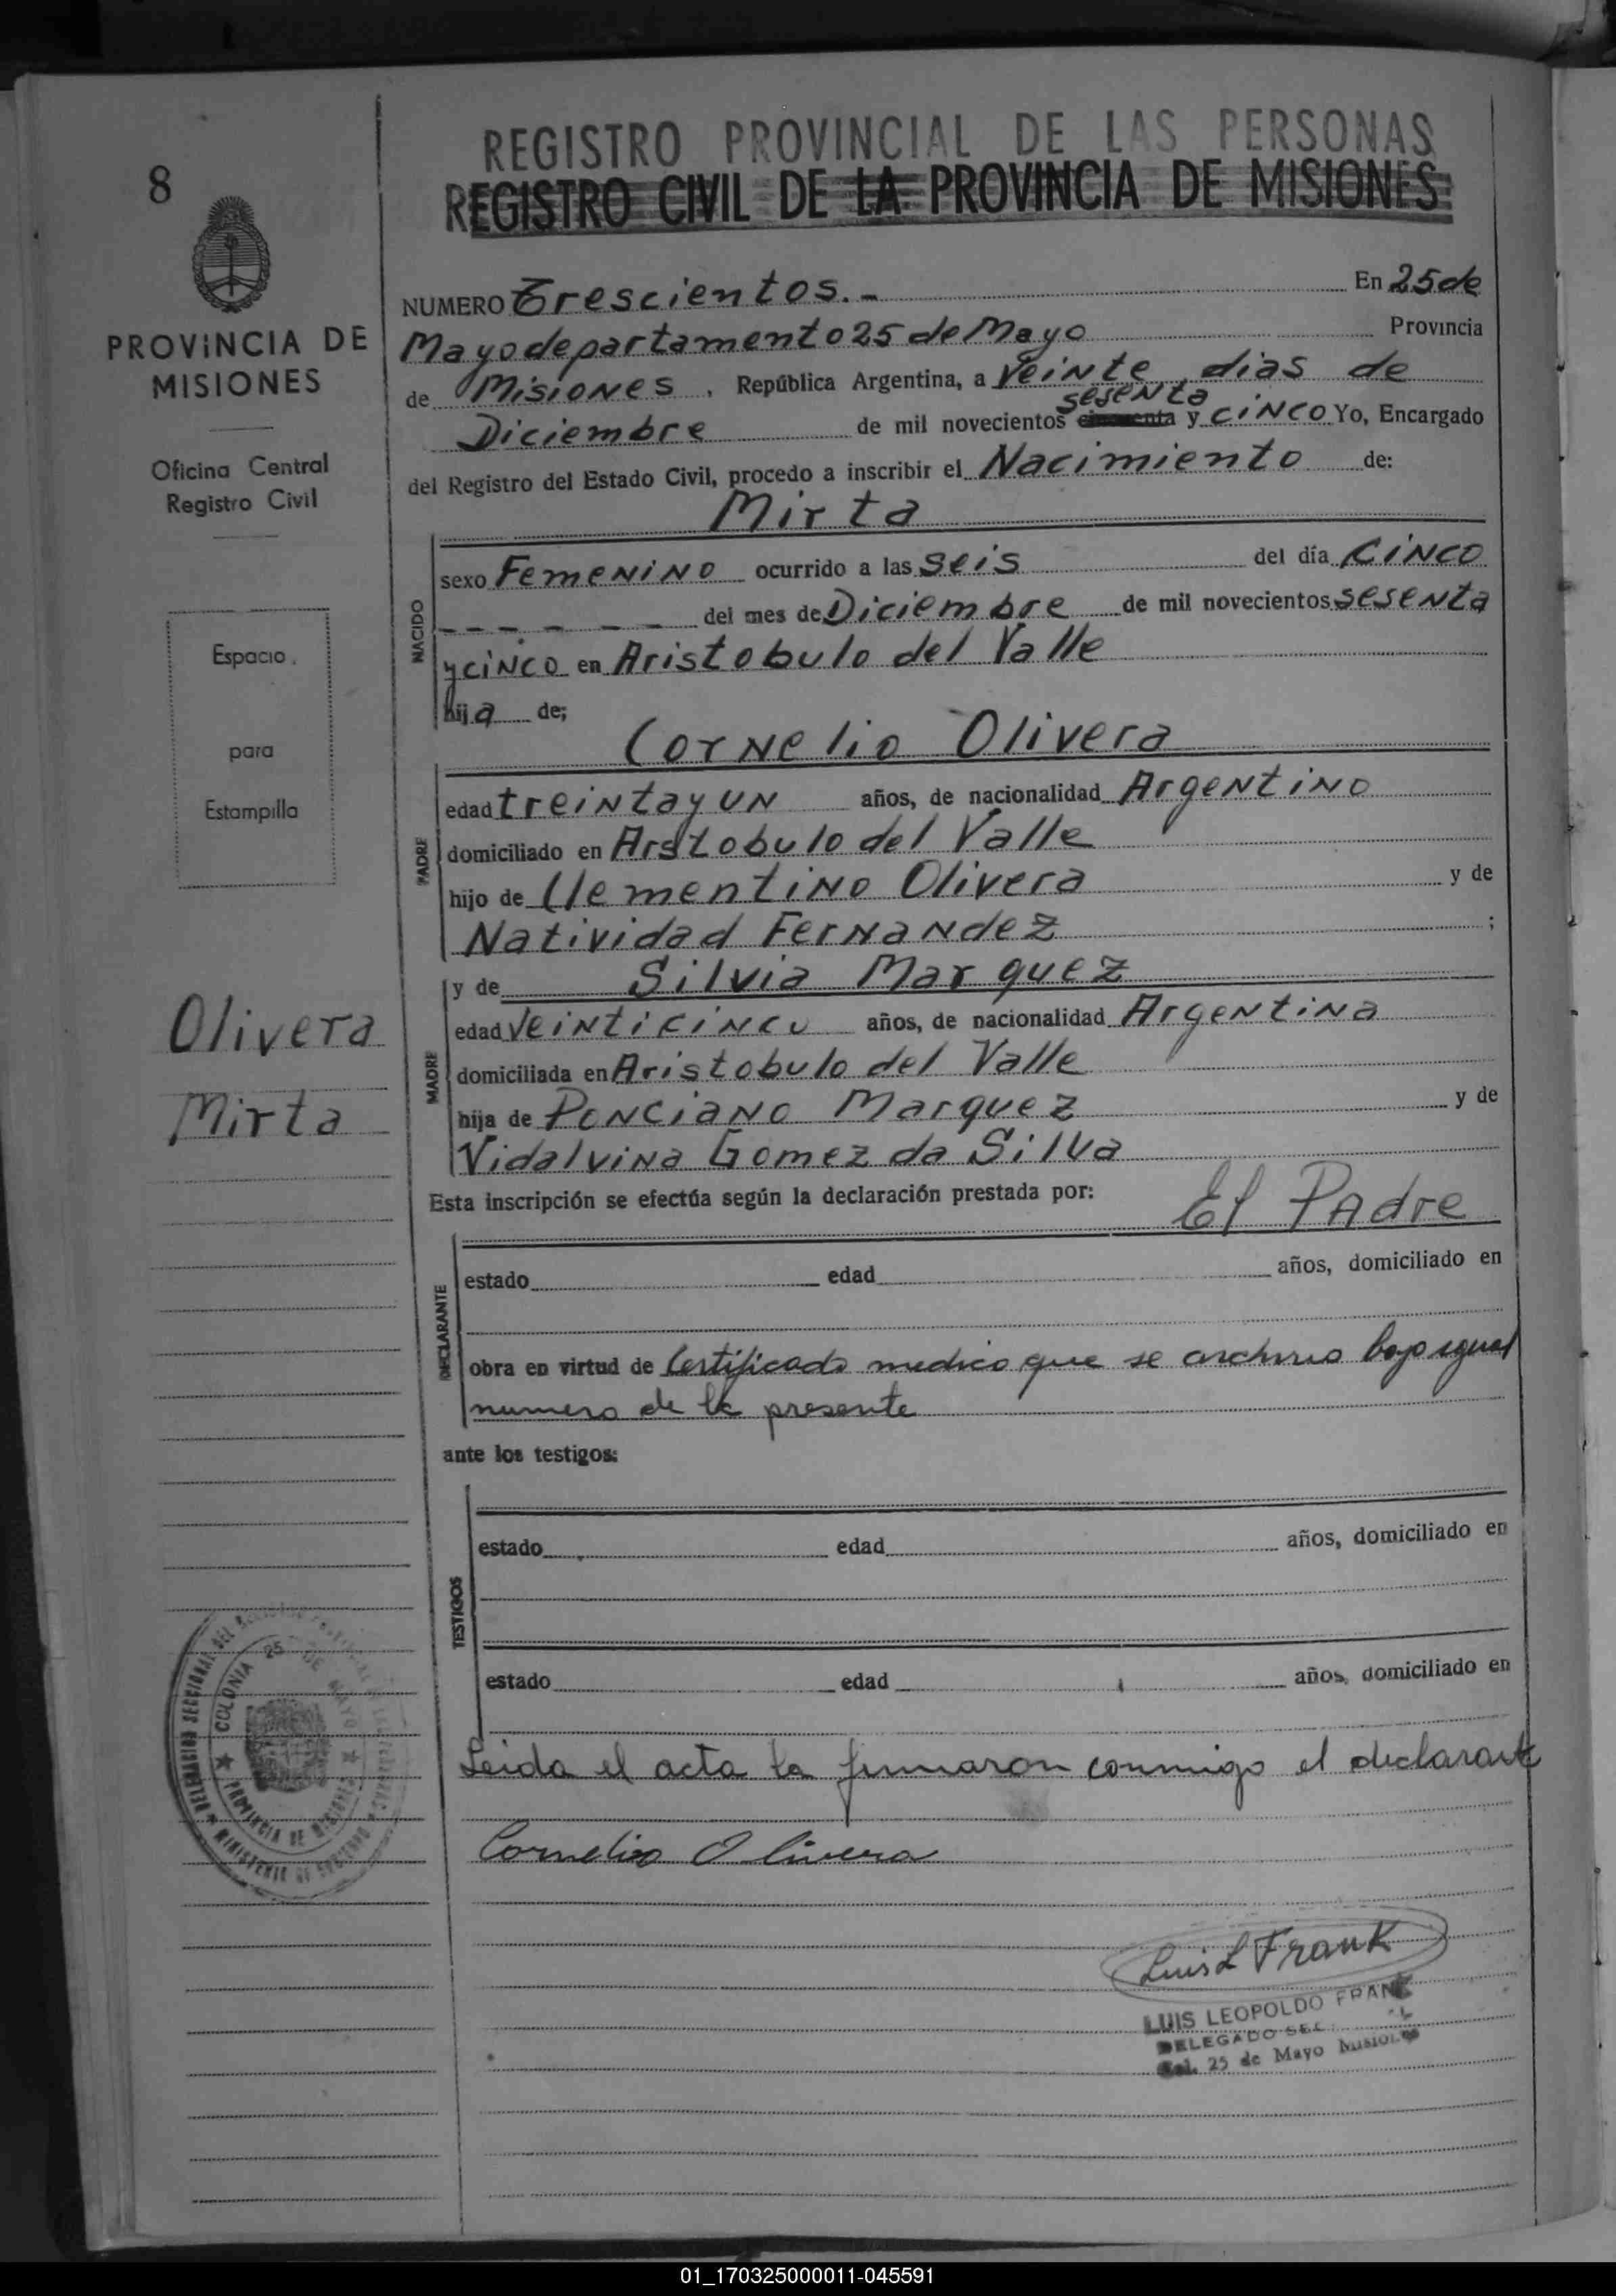 8
PROVINCIA DE
MISIONES
Oficina Central
Registro Civil
Espacio
para
Estampilla
Olivera
Mirta
REGISTRO PROVINCIAL DE LAS PERSONAS
REGISTRO CIVIL DE LA PROVINCIA DE MISIONES
NUMERO Trescientos.- En 25 de
Mayo departamento 25 de Mayo Provincia
de Misiones, República Argentina, a Veinte dias de
sesenta
Diciembre de mil novecientos cincuenta y CINCO Yo, Encargado
del Registro del Estado Civil, procedo a inscribir el Nacimiento de:
Mirta
NACIDO
sexo FemeNiNo ocurrido a las Seis del día CiNCO
- - - - - - del mes de Diciembre de mil novecientos sesenta
y ciNco en Aristobulo del Valle
hija de;
Cornelio Olivera
PADRE
edad treinta y un años, de nacionalidad Argentino
domiciliado en Arstobulo del Valle
hijo de Clementino Olivera y de
Natividad Fernandez ;
MADRE
y de Silvia Marquez
edad Veinticinco años, de nacionalidad Argentina
domiciliada en Aristobulo del Valle
hija de Ponciano Marquez y de
Vidalvina Gomez da Silva
Esta inscripción se efectúa según la declaración prestada por: El Padre
DECLARANTE
estado edad años, domiciliado en
obra en virtud de Certificado medico que se archiva bajo igual
numero de la presente
ante los testigos:
TESTIGOS
estado edad años, domiciliado en
estado edad años, domiciliado en
Leida el acta la firmaron conmigo el declarante
Cornelio Olivera
COLONIA 25 DE MAYO
PROVINCIA DE MISIONES
DELEGACION SECCIONAL DEL
MINISTERIO DE GOBIERNO
Luis L Frank
LUIS LEOPOLDO FRANK
DELEGADO SEC
Col. 25 de Mayo Misiones
01_170325000011-045591